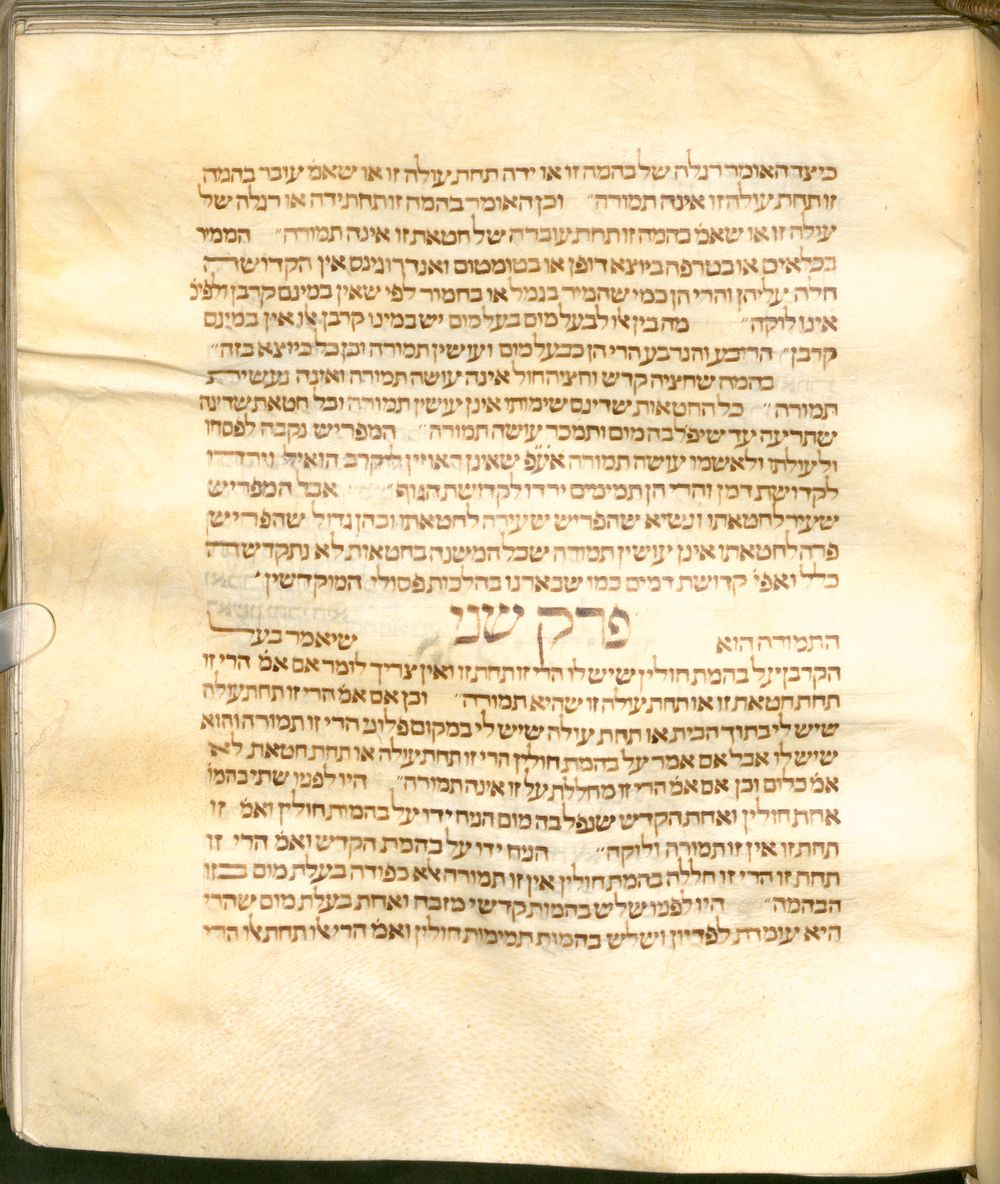 כיצד האומר רגלה של בהמה זו או ידה תחת עולה זו או שאמ׳ עובר בהמה
זו תחת עולה זו אינה תמורה״ וכן האומר בהמה זו תחת ידה או רגלה של
עולה זו או שאמ׳ בהמה זו תחת עוברה של חטאת זו אינה תמורה״ הממיר
בכלאים או בטרפה ביוצא דופן או בטומטום ואנדרוגינס אין הקדושה
חלה עליהן והרי הן כמי שהמיר בגמל או בחמור לפי שאין במינם קרבן ולפיכ׳
אינו לוקה״ מה בין אלו לבעל מום בעל מום יש במינו קרבן אלו אין במינם
קרבן״ הרובע והנרבע הרי הן כבעל מום ועושין תמורה וכן כל כיוצא בזה״
בהמה שחציה קדש וחציה חול אינה עושה תמורה ואינה נעשית
תמורה״ כל החטאות שדינם שימותו אינן עושין תמורה וכל חטאת שדינה
שתרעה עד שיפל בה מום ותמכר עושה תמורה״ המפריש נקבה לפסחו
ולעולתו ולאשמו עושה תמורה אע״פ שאינן ראויין ליקרב הואיל וירדו
לקדושת דמן והרי הן תמימים ירדו לקדושת הגוף״ אבל המפריש
שעיר לחטאתו ונשיא שהפריש שעירה לחטאתו וכהן גדול שהפריש
פרה לחטאתו אינן עושין תמורה שכל המשנה בחטאות לא נתקדשה
כלל ואפי׳ קדושת דמים כמו שבארנו בהלכות פסולי המוקדשין׳
פרק שני
התמורה הוא שיאמר בעל
הקרבן על בהמת חולין שיש לו הרי זו תחת זו ואין צריך לומר אם אמ׳ הרי זו
תחת חטאת זו או תחת עולה זו שהיא תמורה״ וכן אם אמ׳ הרי זו תחת עולה
שיש לי בתוך הבית או תחת עולה שיש לי במקום פלוני הרי זו תמורה והוא
שיש לו אבל אם אמר על בהמת חולין הרי זו תחת עולה או תחת חטאת לא
אמ׳ כלום וכן אם אמ׳ הרי זו מחללת על זו אינה תמורה״ היו לפניו שתי בהמו׳
אחת חולין ואחת הקדש שנפל בה מום הניח ידו על בהמות חולין ואמ׳ זו
תחת זו אין זו תמורה ולוקה״ הניח ידו על בהמת הקדש ואמ׳ הרי זו
תחת זו הרי זו חללה בהמת חולין אין זו תמורה אלא כפודה בעלת מום בזו
הבהמה״ היו לפניו שלש בהמות קדשי מזבח ואחת בעלת מום שהרי
היא עומדת לפדיון ושלש בהמות תמימות חולין ואמ׳ הרי אלו תחת אלו הרי